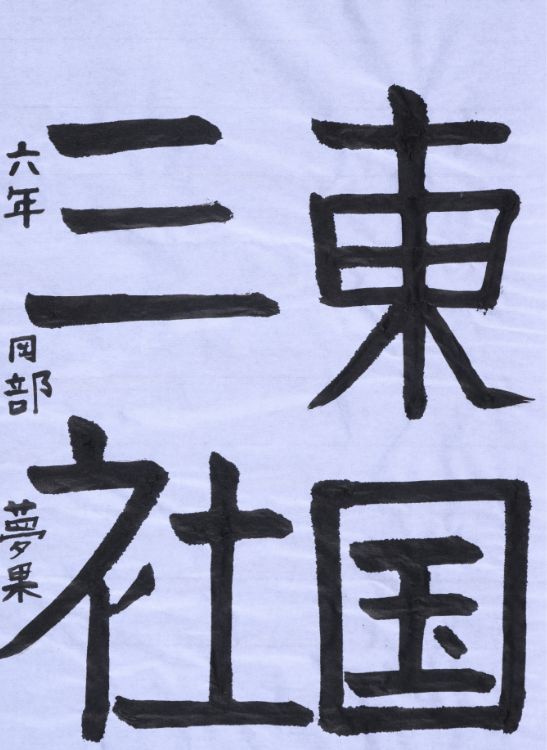 東国
三社
六年 岡部 夢果